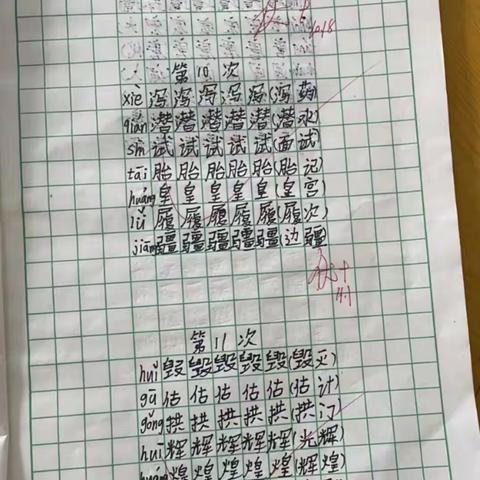 第10次
xiè 泻 泻 泻 泻 泻 (泻药)
qián 潜 潜 潜 潜 潜 (潜水)
shì 试 试 试 试 试 (面试)
tāi 胎 胎 胎 胎 胎 (胎记)
huáng 皇 皇 皇 皇 皇 (皇宫)
lǚ 履 履 履 履 履 (履次)
jiāng 疆 疆 疆 疆 疆 (边疆)
第11次
huǐ 毁 毁 毁 毁 毁 (毁灭)
gū 估 估 估 估 估 (估计)
gǒng 拱 拱 拱 拱 拱 (拱门)
huī 辉 辉 辉 辉 辉 (光辉)
huáng 煌 煌 煌 煌 煌 (辉煌)